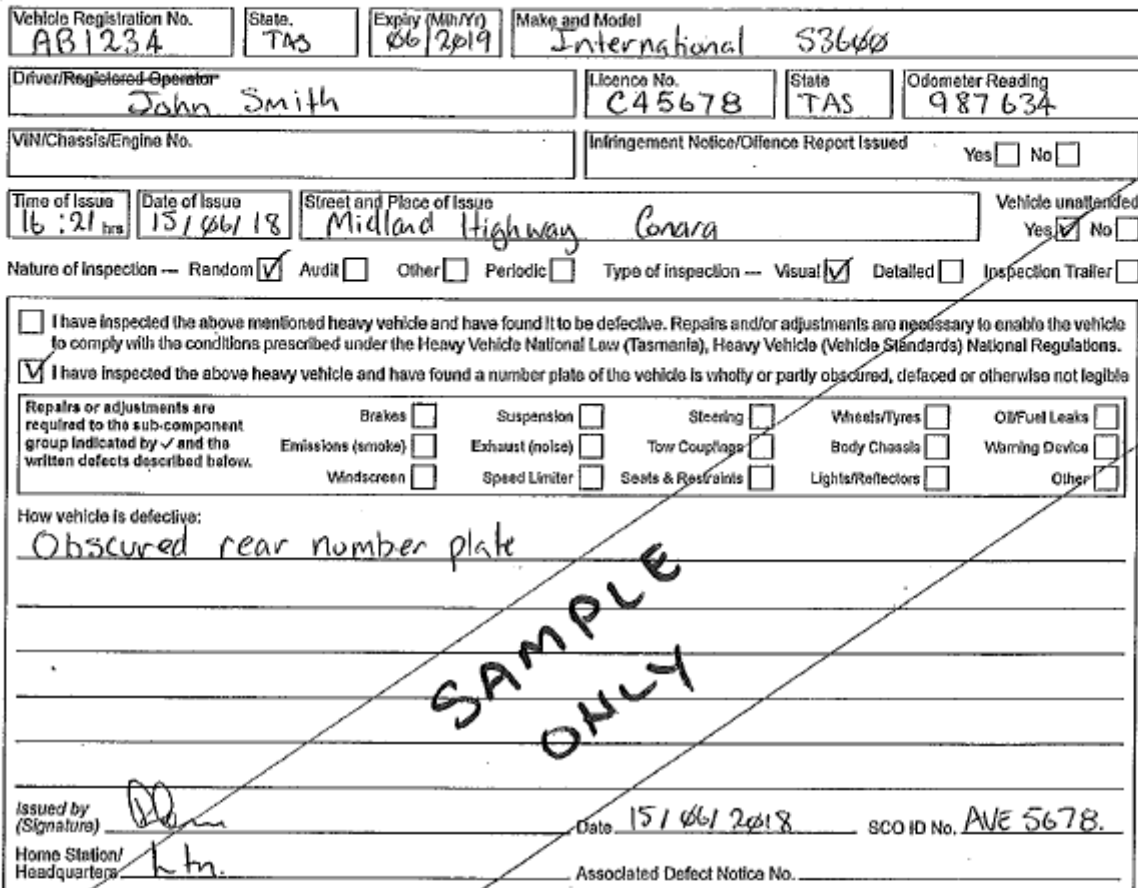 Vehicle Registration No. State. Expiry (Mth/Yr) Make and Model
AB1234 TAS 06/2019 International S3600
Driver/Registered Operator Licence No. State Odometer Reading
John Smith C45678 TAS 987634
VIN/Chassis/Engine No. Infringement Notice/Offence Report Issued Yes No
Time of Issue Date of Issue Street and Place of Issue Vehicle unattended
16:21 hrs 15/06/18 Midland Highway Conara Yes No
Nature of inspection --- Random Audit Other Periodic Type of inspection --- Visual Detailed Inspection Trailer
I have inspected the above mentioned heavy vehicle and have found it to be defective. Repairs and/or adjustments are necessary to enable the vehicle
to comply with the conditions prescribed under the Heavy Vehicle National Law (Tasmania), Heavy Vehicle (Vehicle Standards) National Regulations.
I have inspected the above heavy vehicle and have found a number plate of the vehicle is wholly or partly obscured, defaced or otherwise not legible
Repairs or adjustments are
required to the sub-component
group indicated by ✓ and the
written defects described below.
Brakes Suspension Steering Wheels/Tyres Oil/Fuel Leaks
Emissions (smoke) Exhaust (noise) Tow Couplings Body Chassis Warning Device
Windscreen Speed Limiter Seats & Restraints Lights/Reflectors Other
How vehicle is defective:
Obscured rear number plate
SAMPLE
ONLY
Issued by
(Signature) Date 15/06/2018 SCO ID No. AVE 5678.
Home Station/
Headquarters Ltn. Associated Defect Notice No.